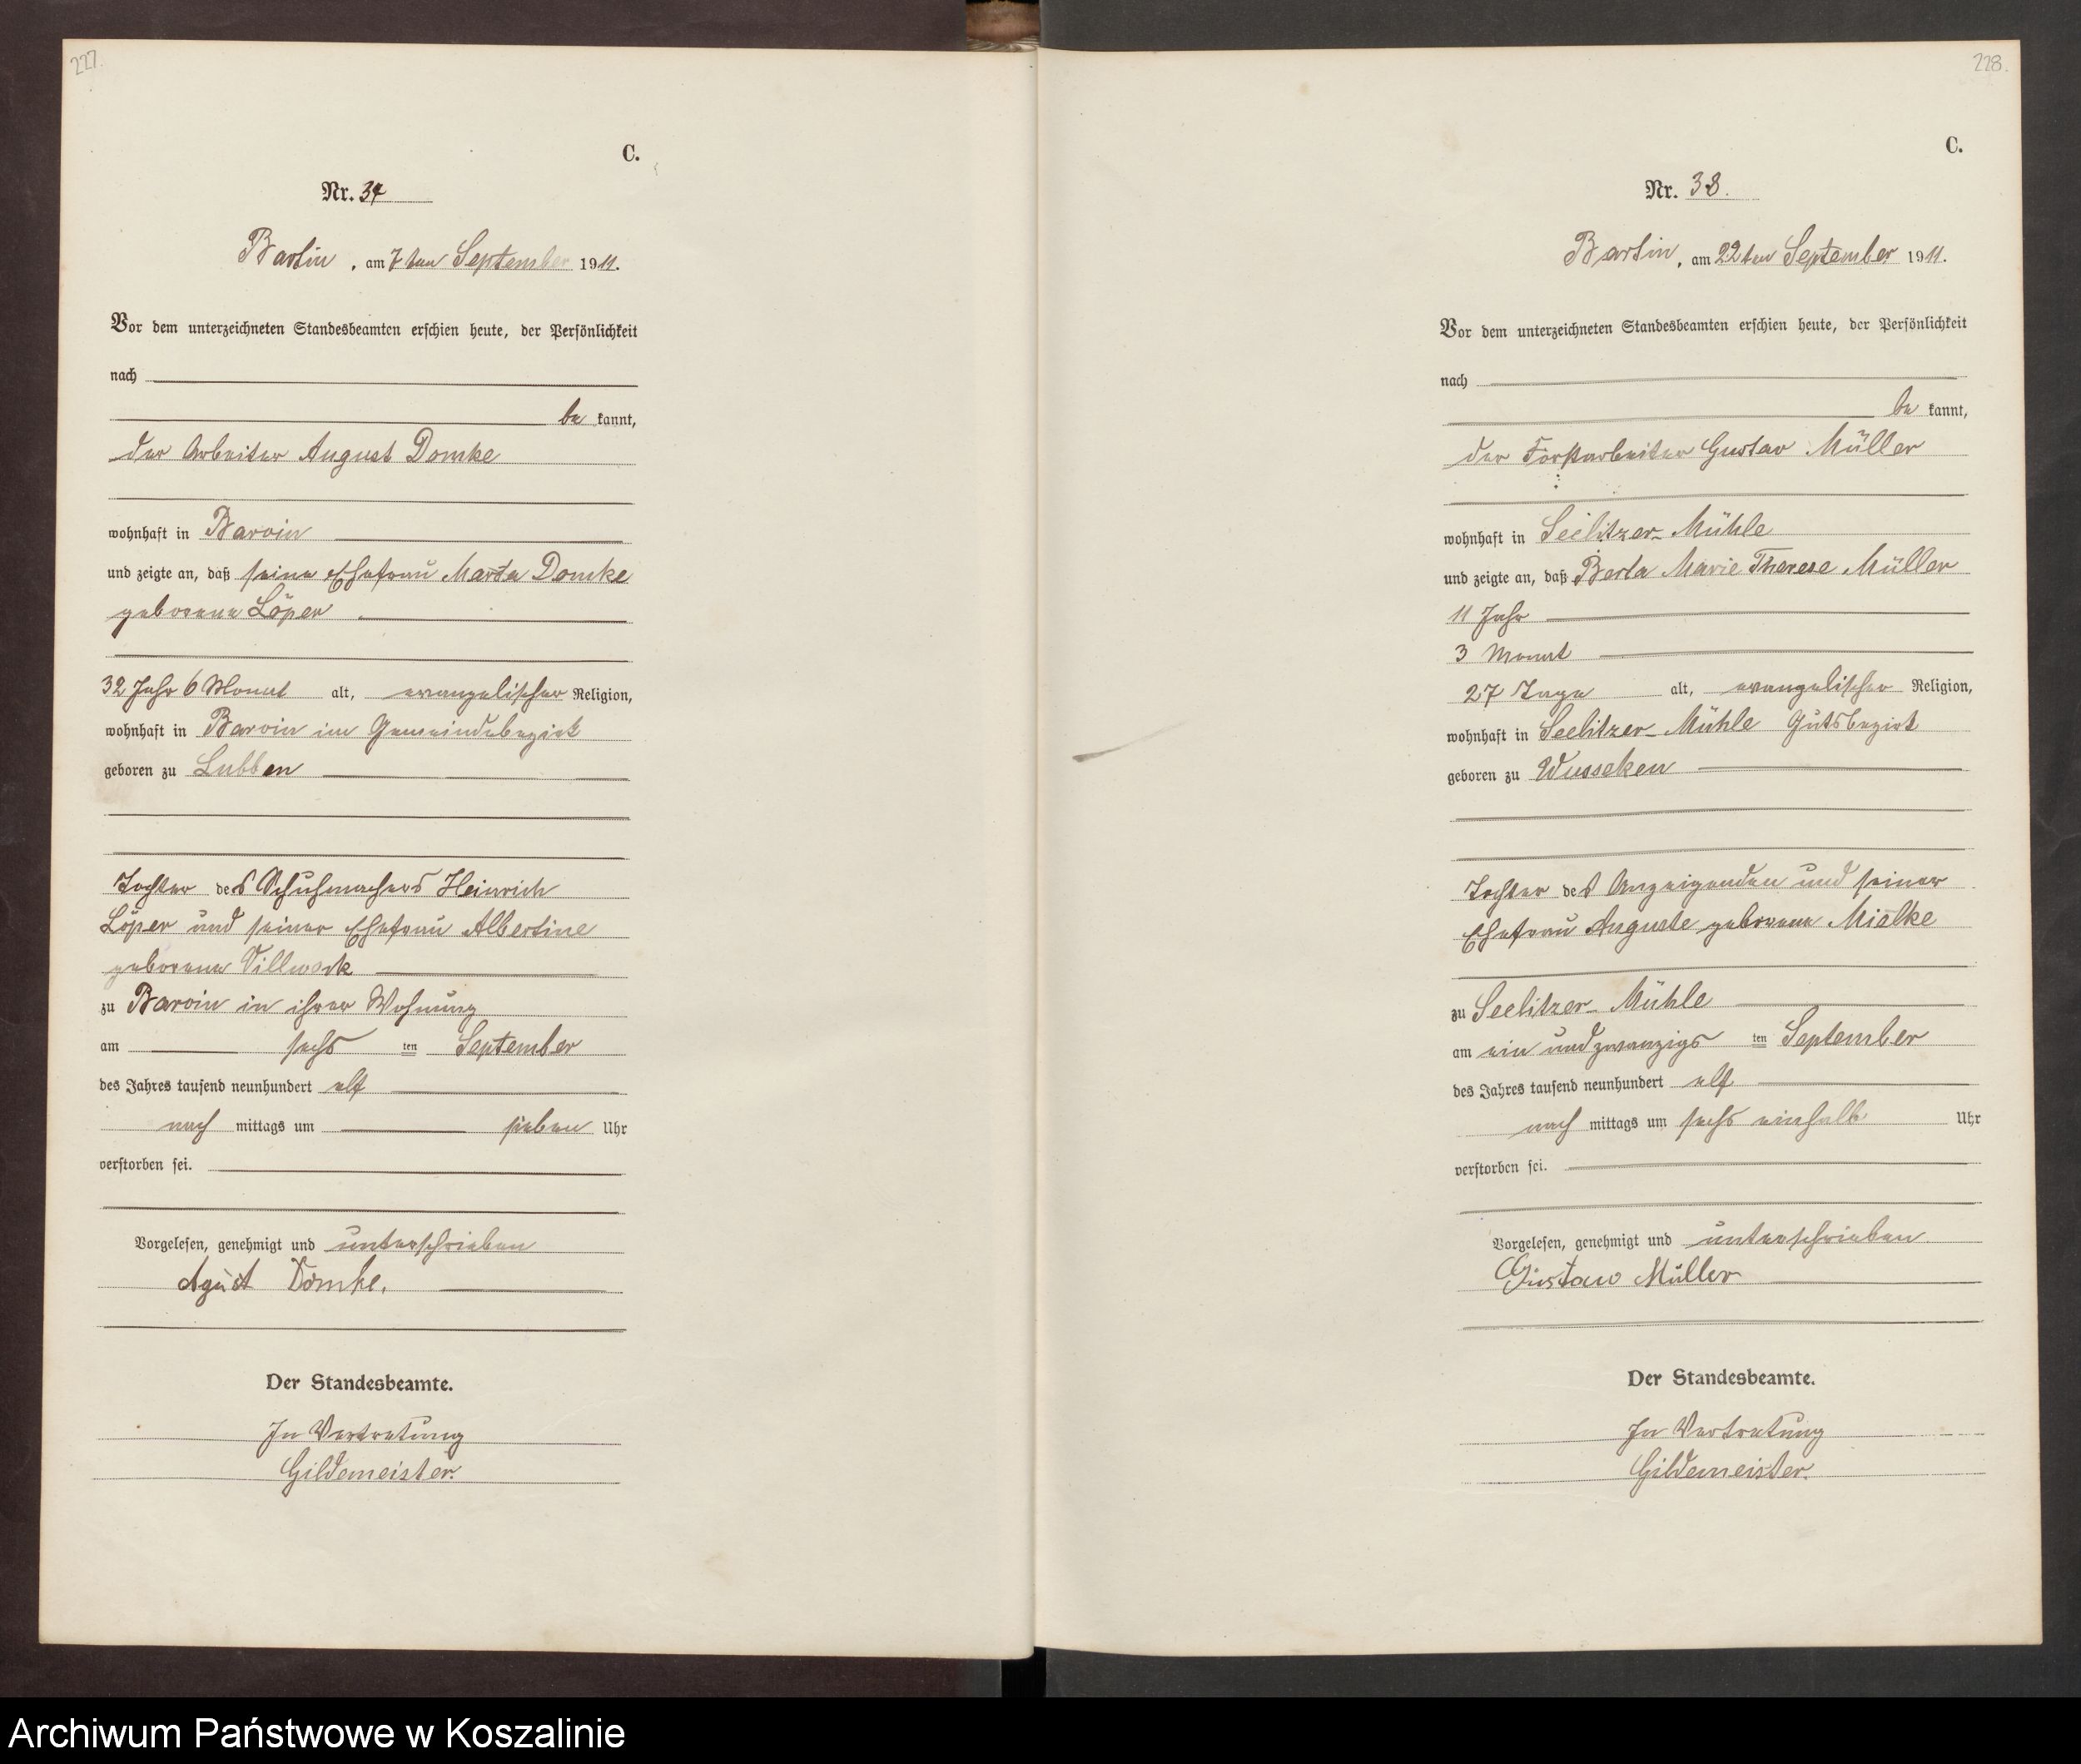 227.
C.
Nr. 37
Bartin, am 7ten September 1911.
Vor dem unterzeichneten Standesbeamten erschien heute, der Persönlichkeit
nach
be kannt,
der Arbeiter August Domke
wohnhaft in Barvin
und zeigte an, daß seine Ehefrau Marta Domke
geborene Löper
32 Jahr 6 Monat alt, evangelischer Religion,
wohnhaft in Barvin im Gemeindebezirk
geboren zu Lubben
Tochter des Schuhmachers Heinrich
Löper und seiner Ehefrau Albertine
geborene Villwock
zu Barvin in ihrer Wohnung
am sechs ten September
des Jahres tausend neunhundert elf
nach mittags um sieben Uhr
verstorben sei.
Vorgelesen, genehmigt und unterschrieben
Agust Domke.
Der Standesbeamte.
In Vertretung
Gildemeister.
228.
C.
Nr. 38.
Bartin, am 22ten September 1911.
Vor dem unterzeichneten Standesbeamten erschien heute, der Persönlichkeit
nach
be kannt,
der Forstarbeiter Gustav Müller
wohnhaft in Seelitzer-Mühle
und zeigte an, daß Berta Marie Therese Müller
11 Jahr
3 Monat
27 Tage alt, evangelischer Religion,
wohnhaft in Seelitzer-Mühle Gutsbezirk
geboren zu Wusseken
Tochter des Anzeigenden und seiner
Ehefrau Auguste geborene Mielke
zu Seelitzer-Mühle
am ein und zwanzigs ten September
des Jahres tausend neunhundert elf
nach mittags um sechs einhalb Uhr
verstorben sei.
Vorgelesen, genehmigt und unterschrieben
Gustaw Müller
Der Standesbeamte.
In Vertretung
Gildemeister.
Archiwum Państwowe w Koszalinie